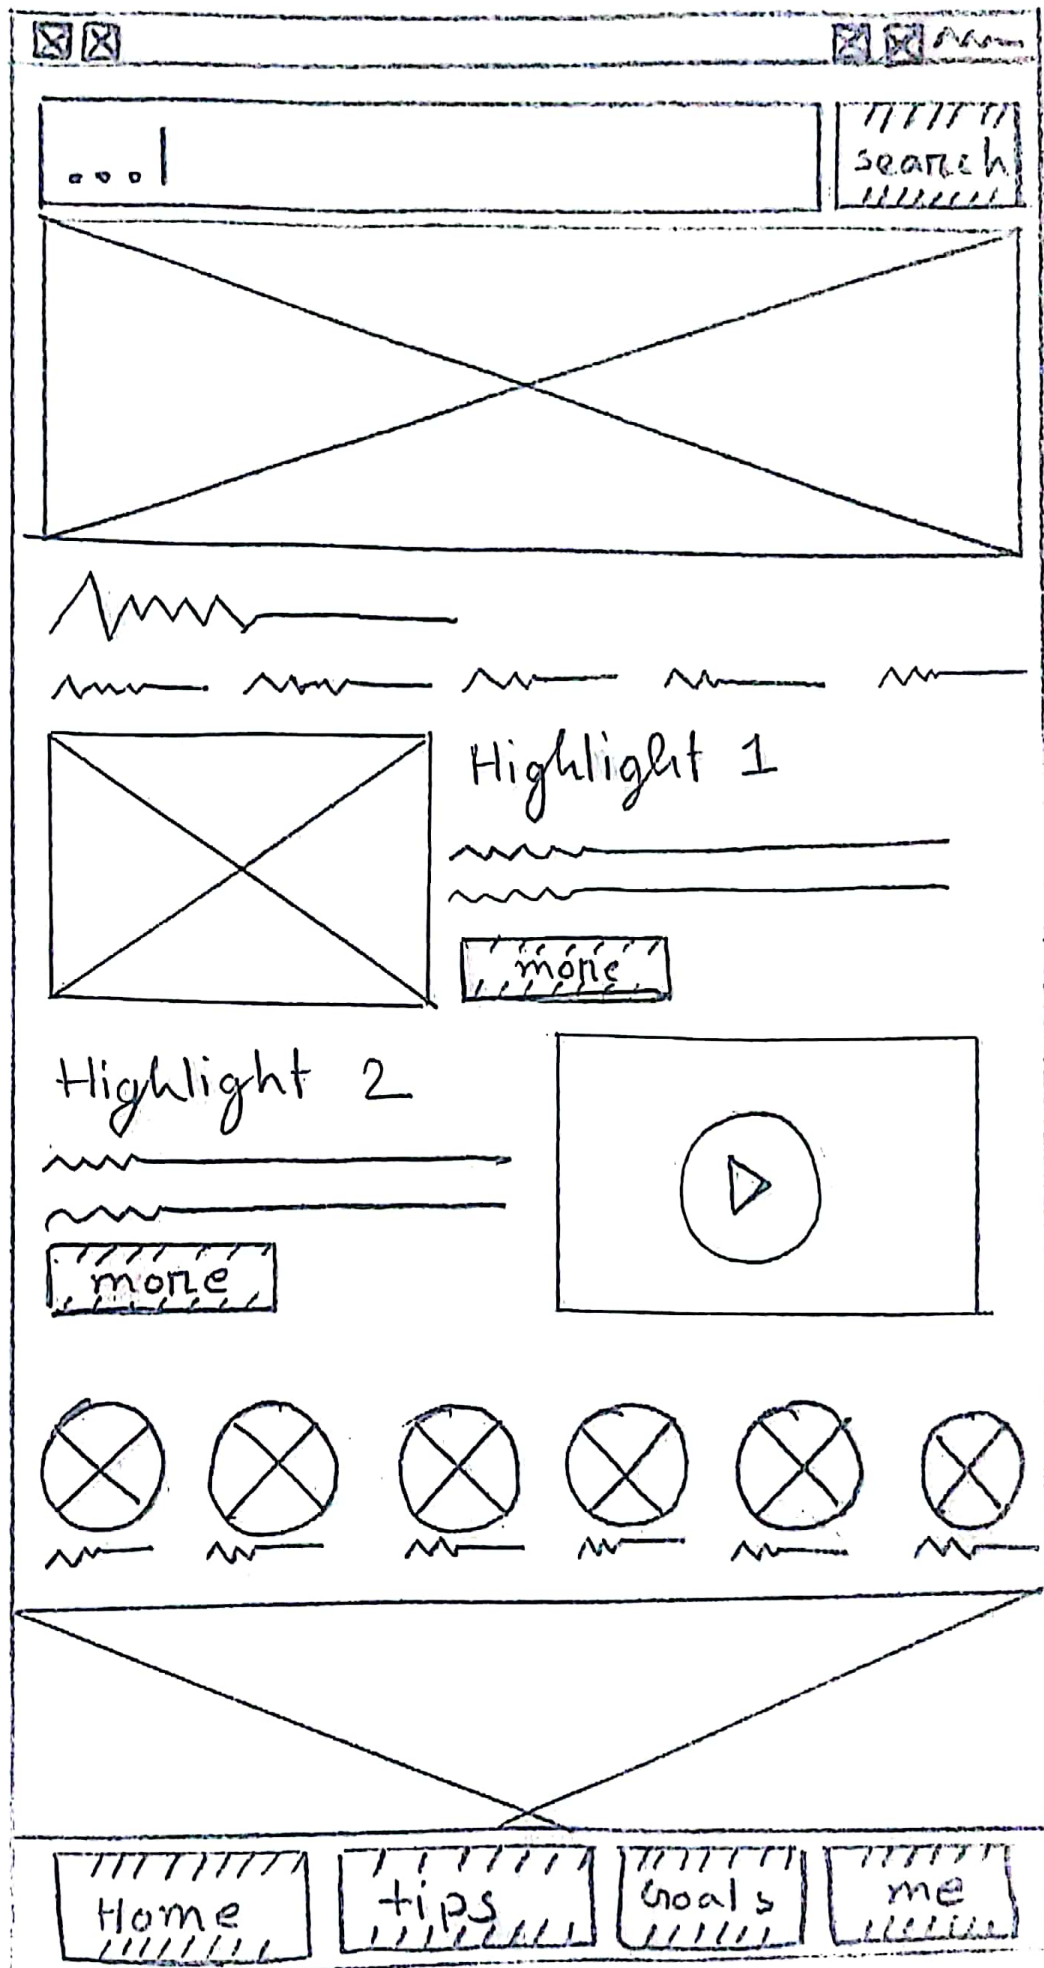 ...|
search
Highlight 1
more
Highlight 2
more
Home
tips
Goals
me